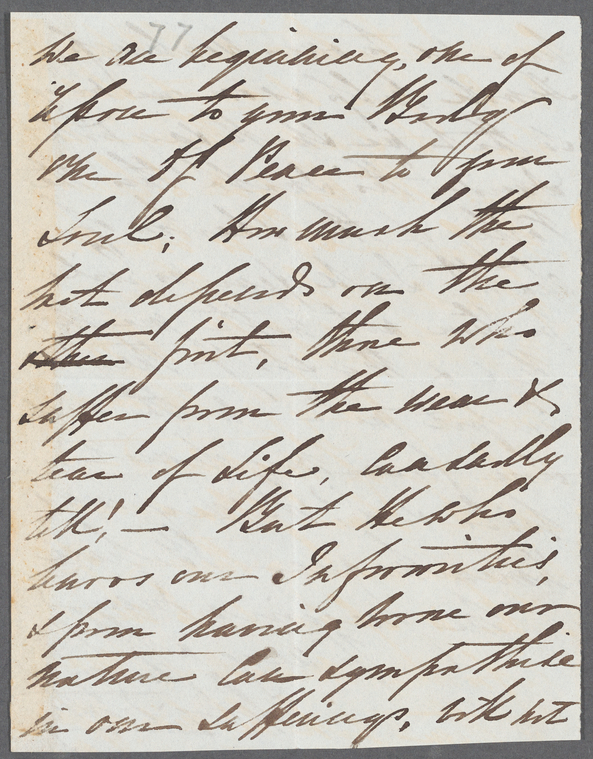 77
We are beginning, one of
Ease to your Body
one of Peace to your
Soul; How much the
last depends on the
other first, those who
suffer from the wear &
tear of Life, can sadly
tell! — But He who
knows our Infirmities,
& from having borne our
nature can sympathise
in our sufferings, will not